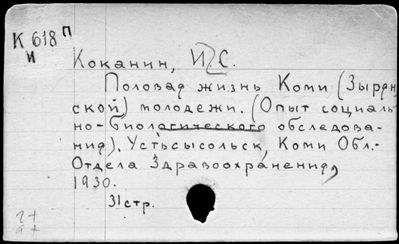 К 618 П
и
Коканин, И. С.
Половая жизнь Коми (Зырян-
ской) молодежи. (Опыт социаль-
но-биологического обследова-
ния). Устьсысольск, Коми Обл.-
Отдела Здравоохранения,
1930.
31 стр.